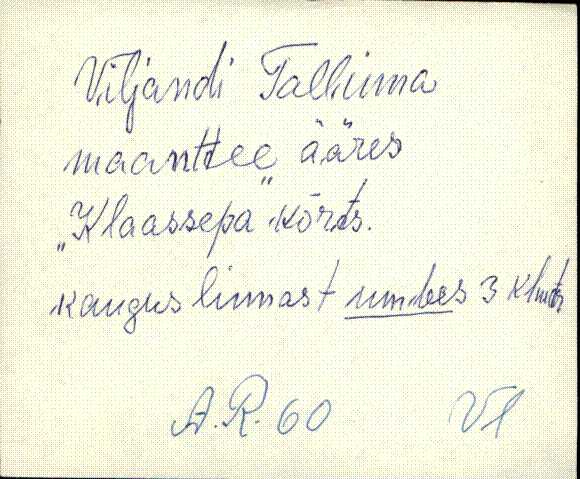 Viljandi Tallinna
maanttee ääres
„Klaassepa" kõrts.
kaugus linnast umbes 3 klmtr.
A. R. 60 Vl